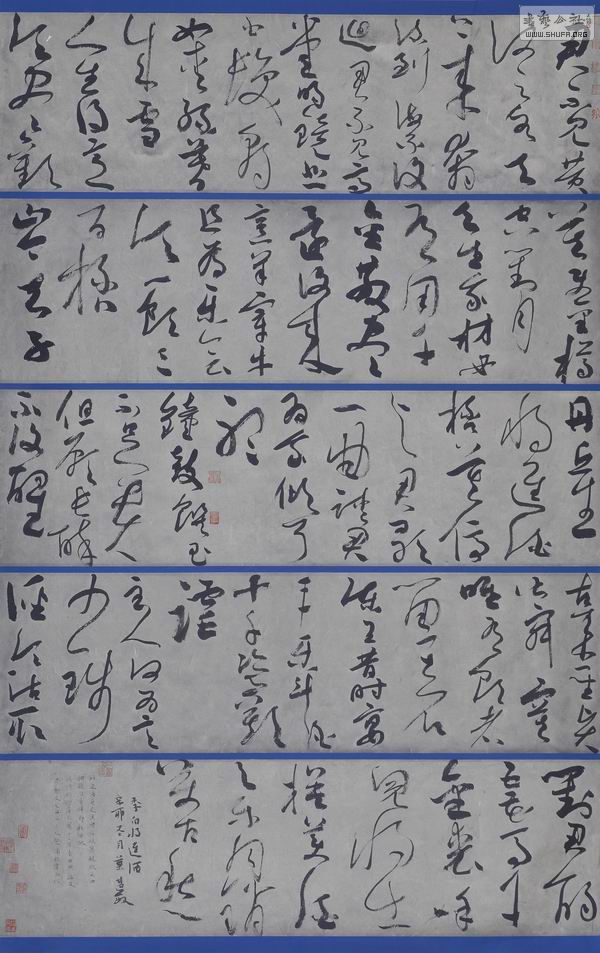 書藝公社
WWW.SHUFA.ORG
君不見黃
河之水天
上來奔
流到海不復
迴君不見高
堂明鏡悲
白髮朝
如青絲暮
成雪
人生得意
須盡歡
莫使金樽
空對月
天生我材必
有用千
金散盡
還復來
烹羊宰牛
且為樂會
須一飲三
百杯
岑夫子
丹丘生
將進酒
杯莫停
與君歌
一曲請君
為我傾耳
聽
鐘鼓饌玉
不足貴
但願長醉
不復醒
古來聖賢
皆寂寞
唯有飲者
留其名
陳王昔時宴
平樂斗酒
十千恣歡
謔
主人何為言
少錢
徑須沽取
對君酌
五花馬千
金裘呼
兒將出
換美酒
與爾同銷
萬古愁
李白將進酒